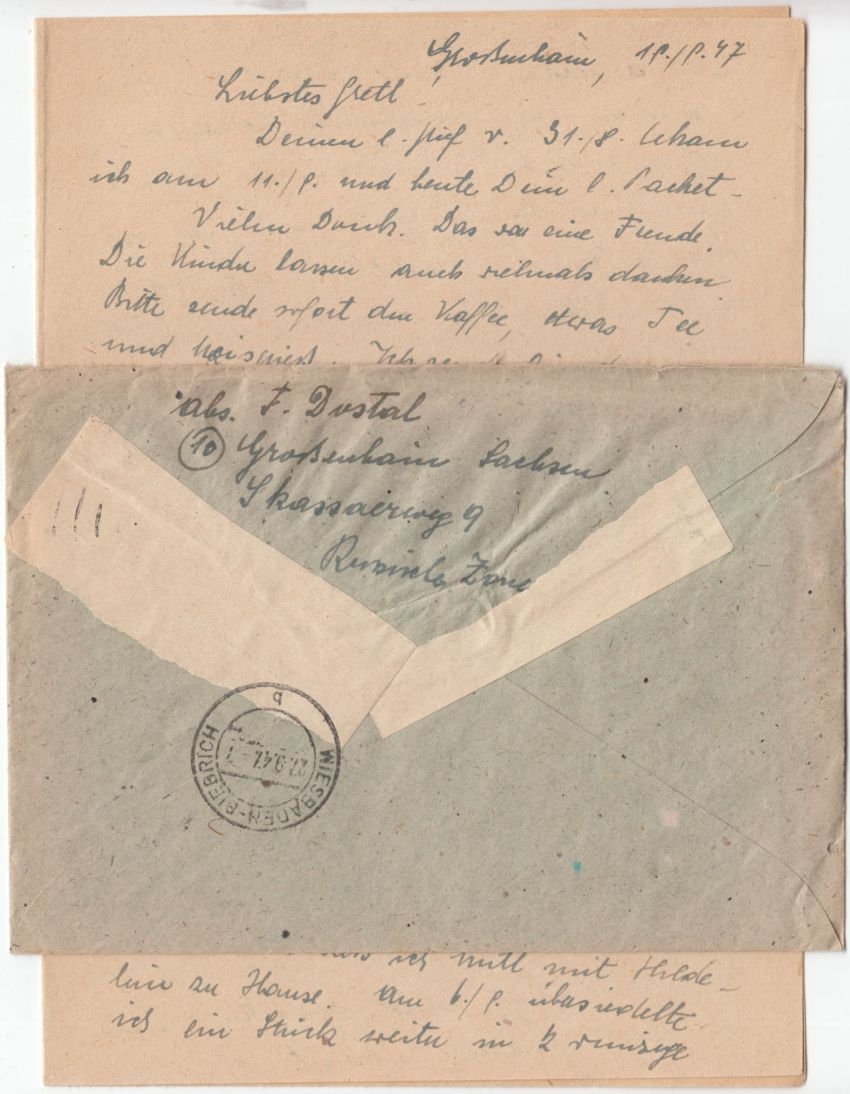 Großenhain, 19./9.47
Liebstes Gretl!
Deinen l. Brief v. 31./8. bekam
ich am 11./9. und heute Dein l. Packet.
Vielen Dank. Das war eine Freude.
Die Kinder lassen auch vielmals danken.
Bitte sende sofort den Kaffee, etwas Tee
und
abs. F. Dostal
10 Großenhain Sachsen
Skassaerweg 9
Russische Zone
WIESBADEN-BIEBRICH
b
27.9.47
ich mit Hilde-
lein zu Hause. Am 6./9. übersiedelte
ich ein Stück weiter in 2 winzige